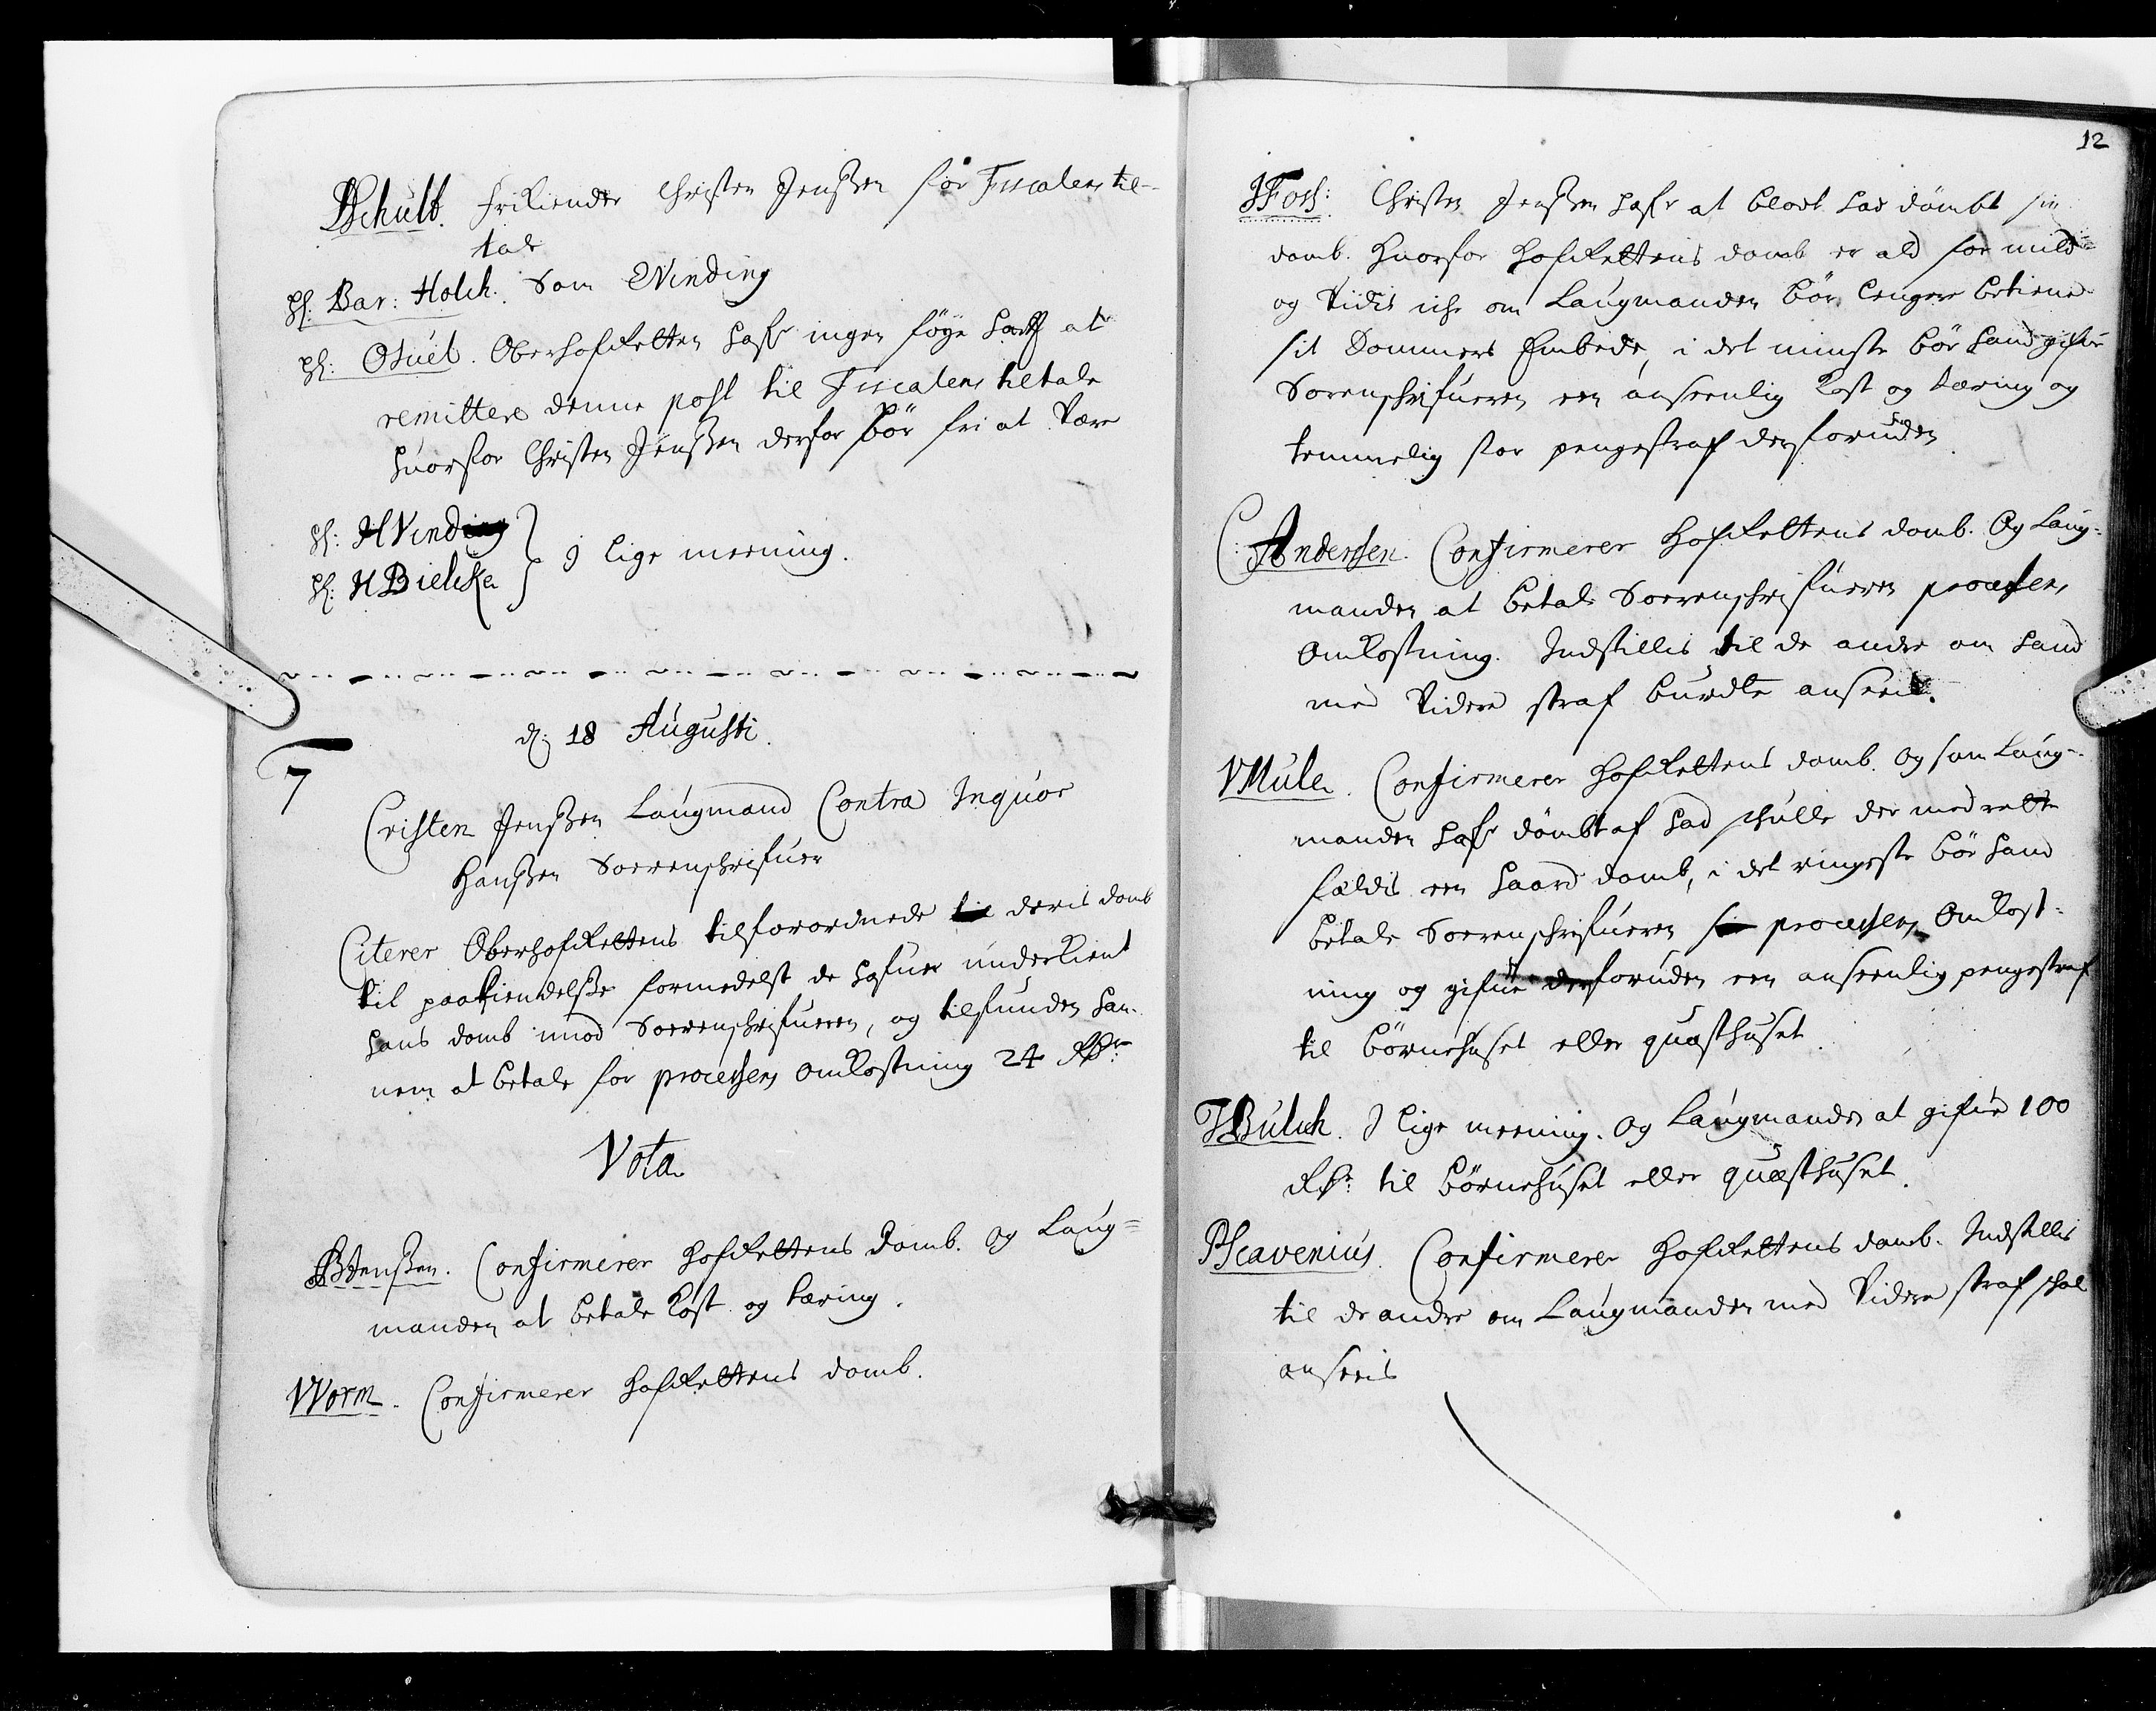 PSchult. Frikiender Christen Jenßen for Fiscalens til-
tale
H: Bar: Holck. Som EVinding
H: OJuel. Oberhofretten hafr ingen føye hafft at
remittere denne post til Fiscalens tiltale
huorfor Christen Jenßen derfor bør fri at være
H: HVinding
H: HBielcke
I lige meening.
d: 18 Augusti.
7
Cristen Jenßen Laugmand Contra Inguor
Hanßen Sorenschrifuer
Citerer Oberhofrettens tilforordnede til deris domb
til paakiendelße formedelst de hafuer underkient
hans domb imod Sorenschrifueren, og tilfunden han-
nem at betale for processens omkostning 24 Rdr
Vota
BJenßen. Confirmerer Hofrettens Domb. og Laug=
manden at betale kost og tæring.
WWorm. Confirmerer Hofrettens domb.
12
JFoss: Christen Jenßen hafr at blodt had dømbt sin
domb. Huorfor Hofrettens domb er ald for mild
og vidis iche om Laugmanden bør lenger betiene
sit Dommers Embede, i det minste bør hand gifue
Sorenschrifueren een anseenlig kost og tæring og
temmelig stor pengestraf derforuden
C: Andersen. Confirmerer Hofrettens domb. Og Laug-
manden at betale Sorenschrifueren processens
omkostning. Indstillis til de andre om hand
med videre straf burdte anseeis.
VMule. Confirmerer Hofrettens domb. og som Laug-
manden hafr dømbt af had schulle der med rette
fældis een haard domb, i det ringeste bør hand
betale Sorenschrifueren processens omkost-
ning og gifue derforuden een anseenlig pengestraf
til Børnehuset eller quæsthuset.
JBulck. I lige meening. og Laugmanden at gifue 100
Rdr til Børnehuset eller quæsthuset.
PScavenius. Confirmerer Hofrettens domb. Indstillis
til de andre om Laugmanden med videre straf schal
anseeis